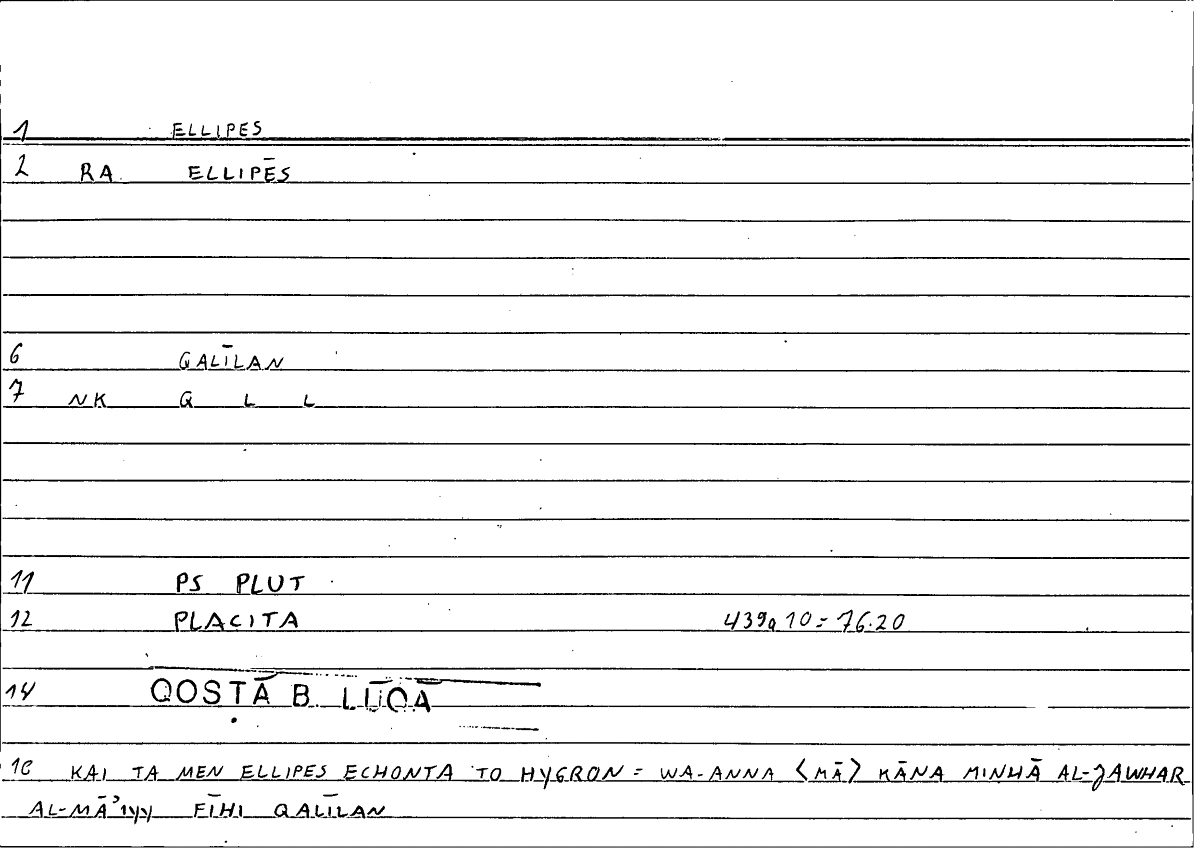 1 ELLIPES
2 RA ELLIPĒS
6 QALĪLAN
7 NK Q L L
11 PS PLUT
12 PLACITA 439a10=76.20
14 QOSṬĀ B. LŪQĀ
16 KAI TA MEN ELLIPES ECHONTA TO HYGRON = WA-ANNA <MĀ> KĀNA MINHĀ AL-JAWHAR
AL-MĀʾIYY FĪHI QALĪLAN